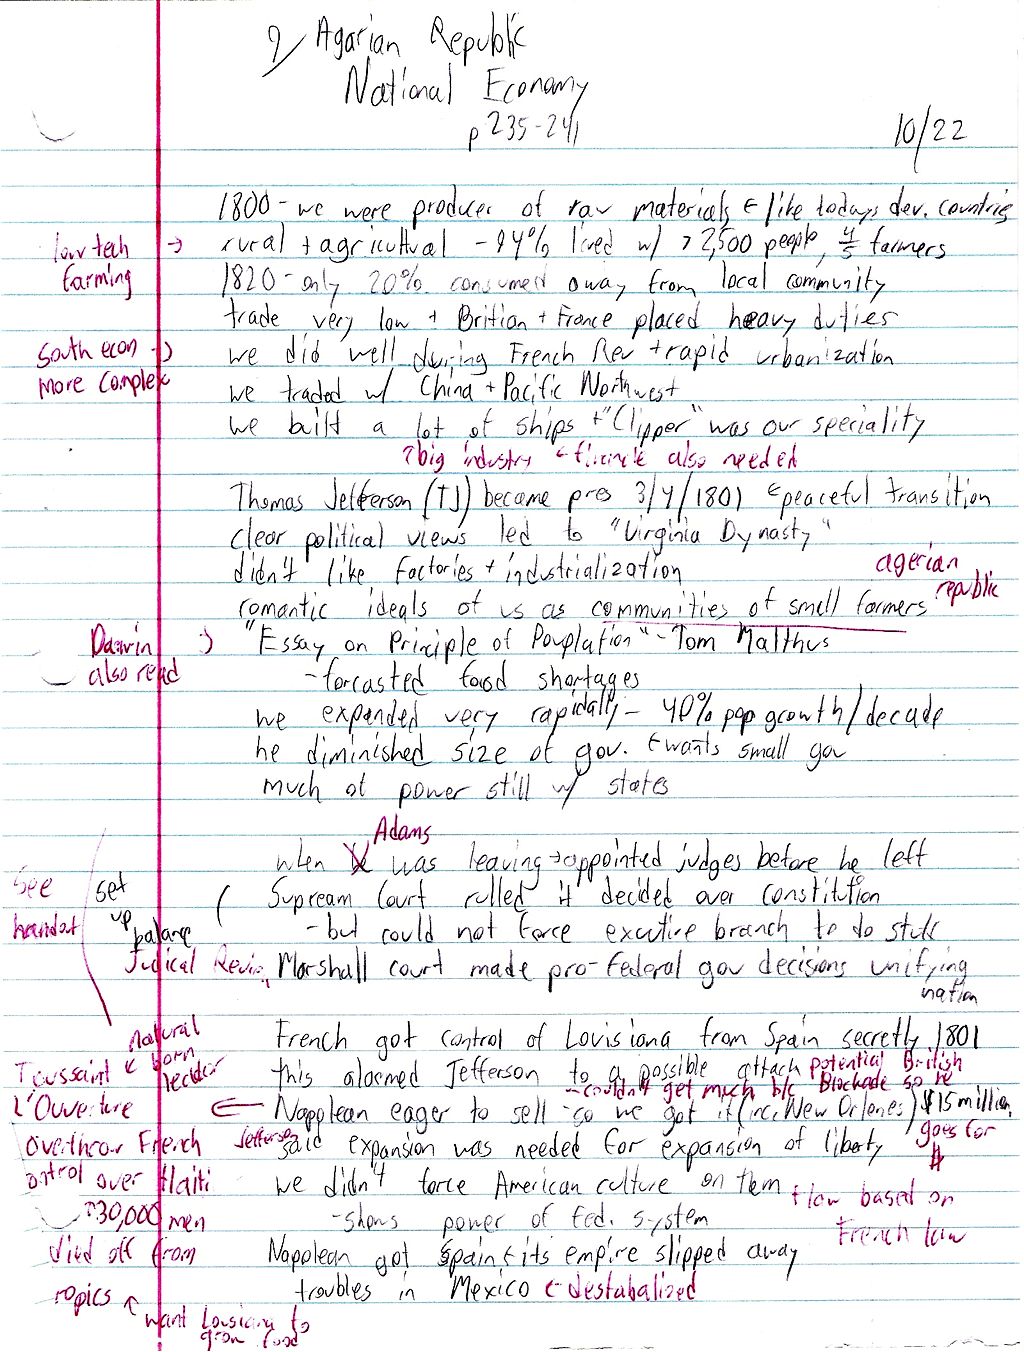 Agarian Republic
National Economy
p 235-241
10/22
1800 - we were producer of raw materials ← like todays dev. countries
low tech farming →
rural + agricultural - 94% lived w/ >2,500 people, 4/5 farmers
1820 - only 20% consumed away from local community
trade very low + Britian + France placed heavy duties
South econ → more complex
we did well during French Rev + rapid urbanization
we traded w/ China + Pacific Northwest
we built a lot of ships + "Clipper" was our speciality
↑ big industry ← also needed
Thomas Jefferson (TJ) became pres 3/4/1801 ← peaceful transition
clear political views led to "Virginia Dynasty"
didn't like factories + industrialization
agerian republic
romantic ideals of us as communities of small farmers
Darwin also read →
"Essay on Principle of Pouplation" - Tom Malthus
- forcasted food shortages
we expanded very rapidally - 40% pop growth/decade
he diminished size of gov. ← wants small gov
much of power still w/ states
Adams
when was leaving → appointed judges before he left
See handot
set up balance
Supream Court rulled it decided over constitution
- but could not force exective branch to do stuff
Judical Review
Marshall court made pro-federal gov decisions unifying nation
French got control of Louisiana from Spain secretly 1801
Toussaint L'Ouverture ← natural born leader
this alarmed Jefferson to a possible attack
- couldn't get much b/c potential British Blockade so he
← Nappolean eager to sell - so we got it (inc. New Orlenes) $15 million
goes for $
overthrow French control over Haiti
Jefferson said expansion was needed for expansion of liberty
we didn't force American culture on them
+ law based on French law
- shows power of fed. system
↑ 30,000 men died off from tropics
Nappolean got Spain + its empire slipped away
troubles in Mexico ← destabalized
↑ want Lousiana to grow food